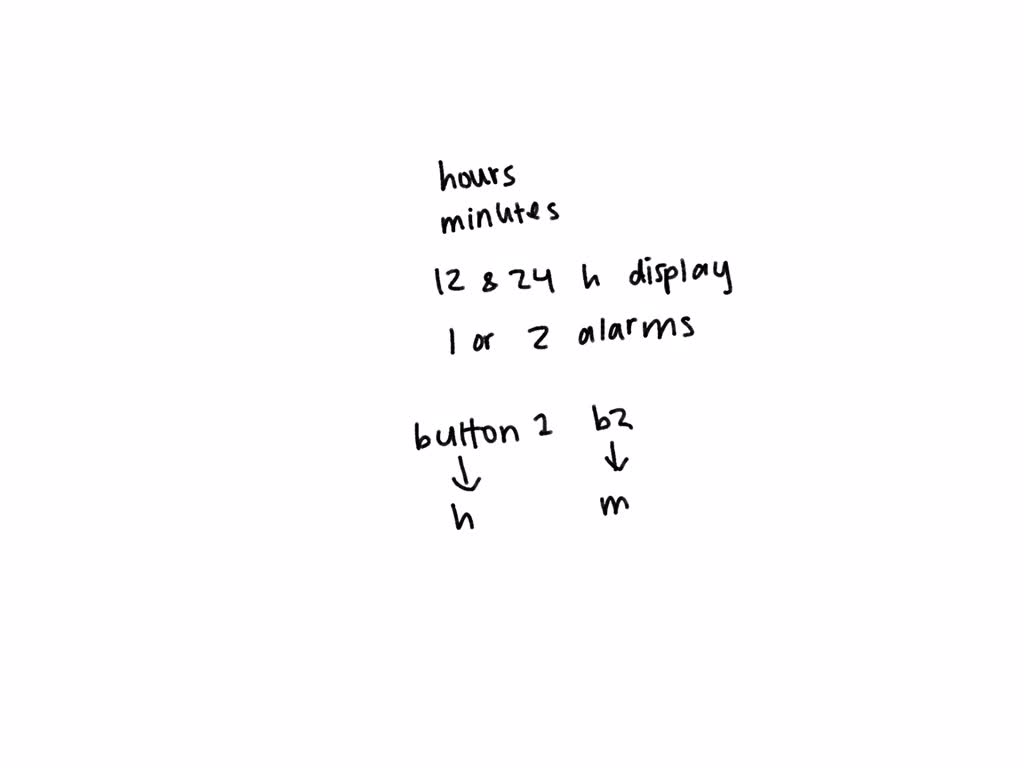 hours
minutes
12 & 24 h display
1 or 2 alarms
button 1 b2
↓ ↓
h m